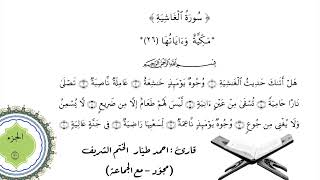 ﴿ سُورَةُ ٱلْغَاشِيَةِ ﴾
"مَكِّيَّةٌ وَءَايَاتُهَا (٢٦)"
بِسْمِ ٱللَّهِ ٱلرَّحْمَٰنِ ٱلرَّحِيمِ
هَلْ أَتَىٰكَ حَدِيثُ ٱلْغَٰشِيَةِ ۝ وُجُوهٌ يَوْمَئِذٍ خَٰشِعَةٌ ۝ عَامِلَةٌ نَّاصِبَةٌ ۝ تَصْلَىٰ
نَارًا حَامِيَةً ۝ تُسْقَىٰ مِنْ عَيْنٍ ءَانِيَةٍ ۝ لَّيْسَ لَهُمْ طَعَامٌ إِلَّا مِن ضَرِيعٍ ۝ لَّا يُسْمِنُ
وَلَا يُغْنِى مِن جُوعٍ ۝ وُجُوهٌ يَوْمَئِذٍ نَّاعِمَةٌ ۝ لِّسَعْيِهَا رَاضِيَةٌ ۝ فِى جَنَّةٍ عَالِيَةٍ ۝
الجزء
قارئ : احمد طيّار الختم الشريف
(مجوّد - مع الجماعة)